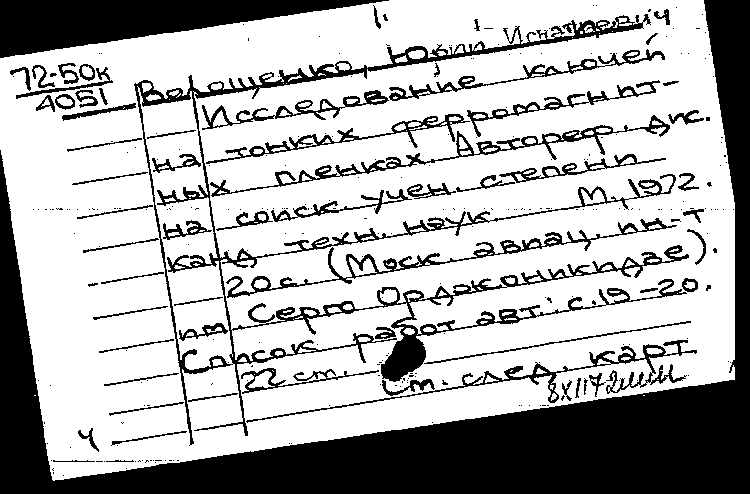 72-50к
4051
Ворощенко, Юрий Игнатьевич
Исследование ключей
на тонких ферромагнит-
ных пленках. Автореф. дис.
на соиск. учен. степени
канд техн. наук. М., 1972.
20 с. (Моск. авиац. ин-т
им. Серго Орджоникидзе).
Список работ авт.: с. 19-20.
22 ст.
См. след. карт
Ч